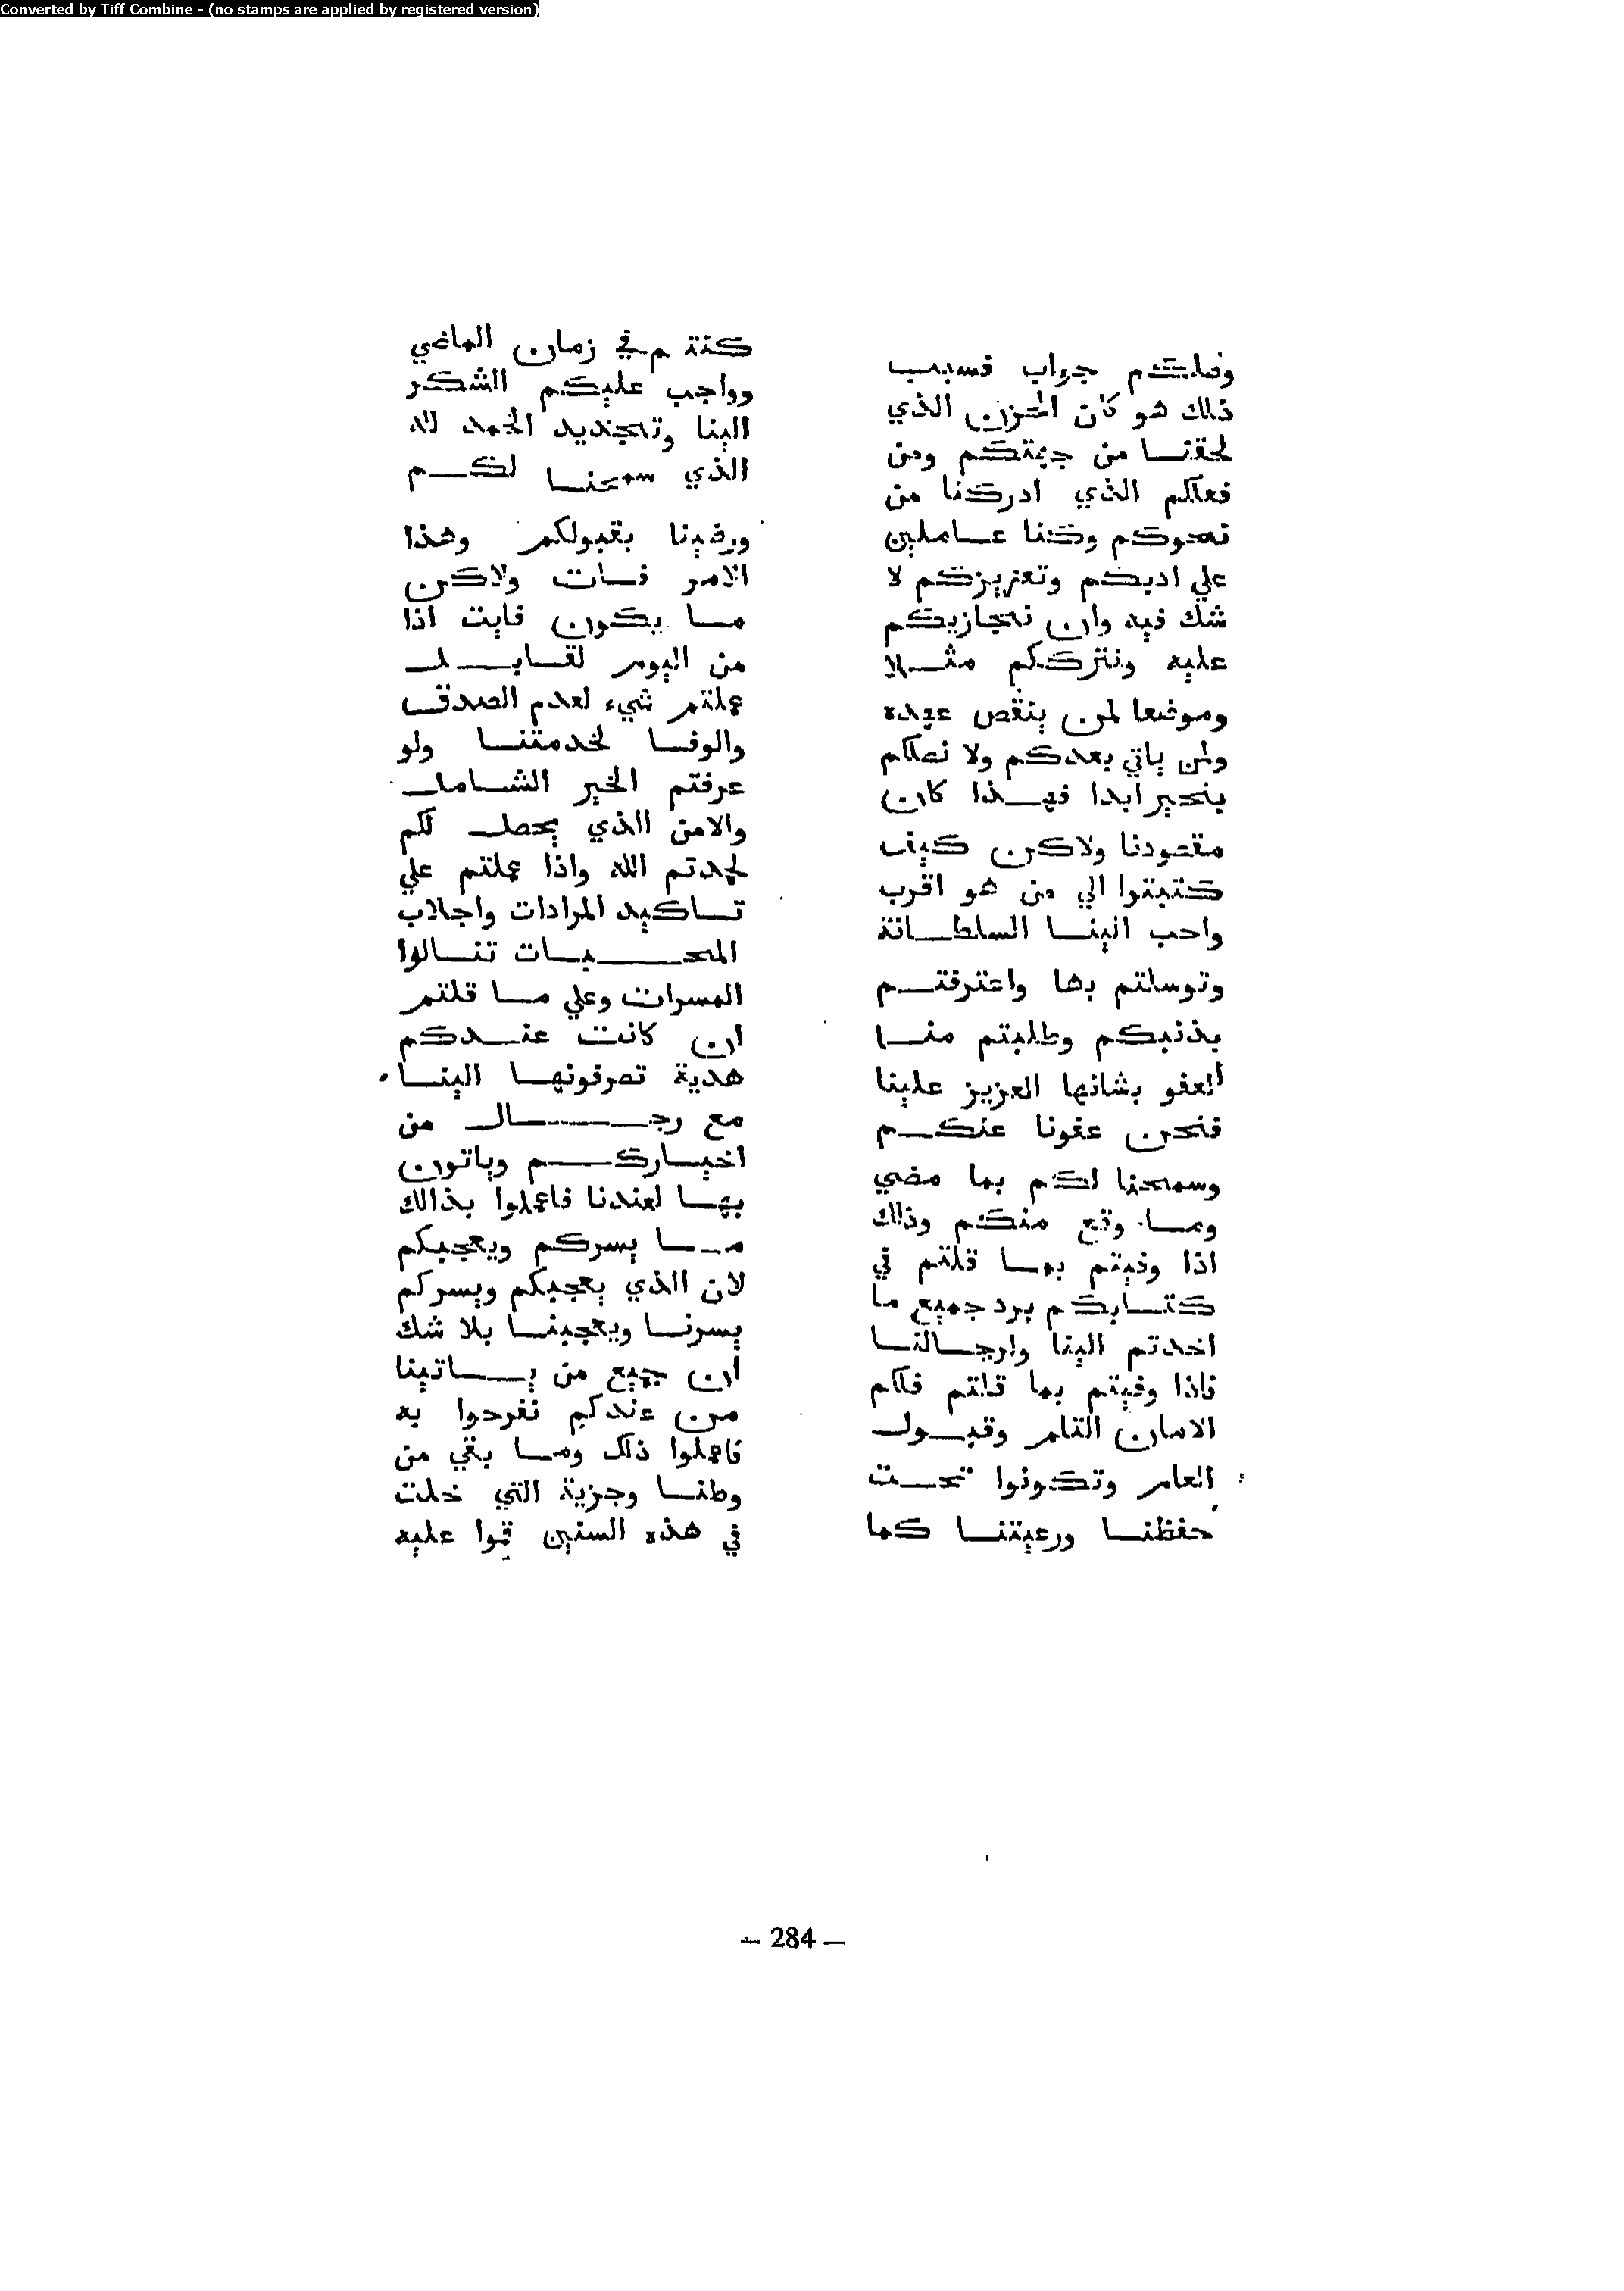 Converted by Tiff Combine - (no stamps are applied by registered version)
وصلكم جواب فسبب
ذلك هو كان الحزن الذي
لحقنا من جهتكم ومن
فعلكم الذي ادركنا من
نحوكم وكنا عاملين
علي ادبكم وتعزيزكم لا
شك فيه وان نجازيكم
عليه ونترككم مثلا
وموضعا لمن ينقص عهده
ولمن ياتي بعدكم ولا نصلكم
بخير ابدا فهذا كان
مقصودنا ولاكن كيف
كتبتوا الي من هو اقرب
واحب الينا السلطانة
وتوسلتم بها واعترفتم
بذنبكم وطلبتم منا
العفو بشانها العزيز علينا
فنحن عفونا عنكم
وسمحنا لكم بما مضي
وما وقع منكم وذلك
اذا وفيتم بما قلتم في
كتابكم برد جميع ما
اخدتم الينا ولرجالنا
فاذا وفيتم بما قلتم فلكم
الامان التام وقبول
العام وتكونوا تحت
حفظنا ورعيتنا كما
كنتم في زمان الماضي
وواجب عليكم الشكر
الينا وتجديد الحمد لله
الذي سمحنا لكم
ورضينا بقبولكم وهذا
الامر فات ولاكن
ما يكون فايت اذا
من اليوم لقابل
عملتم شيء لعدم الصدق
والوفا لخدمتنا ولو
عرفتم الخير الشامل
والامن الذي يحصل لكم
لحمدتم الله واذا عملتم علي
تاكيد المرادات واجلاب
المحبات تنالوا
المسرات وعلي ما قلتم
ان كانت عندكم
هدية تصرفونها الينا
مع رجال من
اخياركم وياتون
بها لعندنا فاعملوا بذالك
ما يسركم ويعجبكم
لان الذي يعجبكم ويسركم
يسرنا ويعجبنا بلا شك
ان جميع من ياتينا
من عندكم نفرحوا به
فاعملوا ذلك وما بقي من
وطنا وجزية التي خلت
في هذه السنين قموا عليه
— 284 —